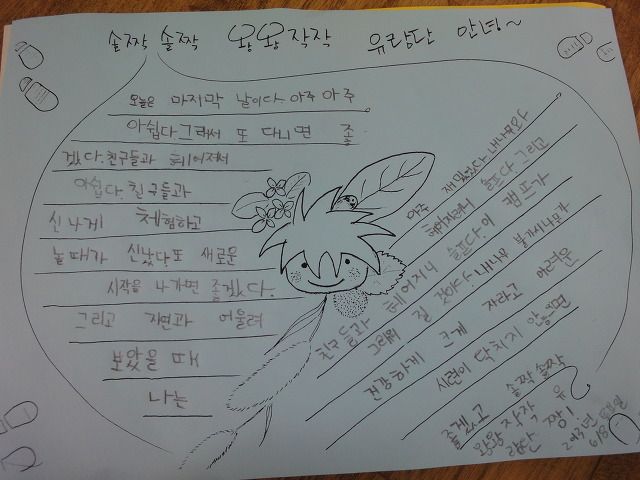 솔짝 솔짝 왕왕작작 유람단 안녕~
오늘은 마지막 날이다. 아주 아주
아쉽다. 그래서 또 다니면 좋
겠다. 친구들과 헤어져서
아쉽다. 친구들과
신나게 체험하고
놀때가 신났다. 또 새로운
시작을 나가면 좋겠다.
그리고 자연과 어울려
보았을 때
나는
아주 재밌었다. 내 나무와
헤어지려해 슬프다. 그리고
친구들과 헤어지니 슬프다. 이 캠프가
그래워 질 것이다. 내 나무
건강하게 크게 자라고 어려운
시련이 닥치지 않으면
좋겠고 솔짝 솔짝
왕왕 작작 유
람단 짱!